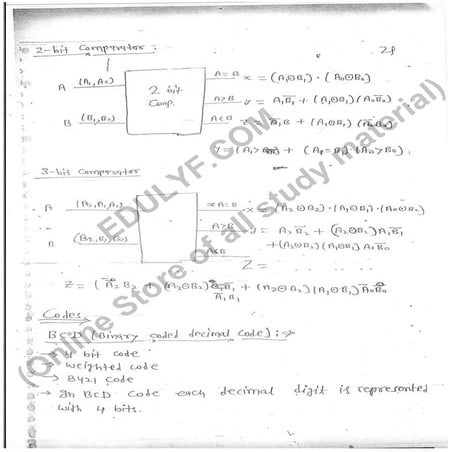 2-bit Comprator :
28
A (A₁,A₀)
B (B₁,B₀)
2 bit
Comp.
A=B x = (A₁⊙B₁) · (A₀⊙B₀)
A>B y = A₁B̅₁ + (A₁⊙B₁)(A₀B̅₀)
A<B z = A̅₁B + (A₁⊙B₁)(A̅₀B₀)
Y = (A₁>B₁) + (A₁=B₁)·(A₀>B₀).
3-bit comprator
A (A₂,A₁,A₀)
B (B₂,B₁,B₀)
A=B x = (A₂⊙B₂)·(A₁⊙B₁)·(A₀⊙B₀)
A>B y = A₂B̅₂ + (A₂⊙B₂)A₁B̅₁
+(A₂⊙B₂)(A₁⊙B₁)A₀B̅₀
A<B Z =
Z = (A̅₂B₂ + (A₂⊙B₂)A̅₁B₁ + (A₂⊙B₂)(A₁⊙B₁)A̅₀B₀
Codes
BCD (Binary coded decimal code) :-
→ 4 bit code
→ weighted code
→ 8421 code
→ In BCD code each decimal digit is represented
with 4 bits.
EDULYF.COM
(Online Store of all study material)